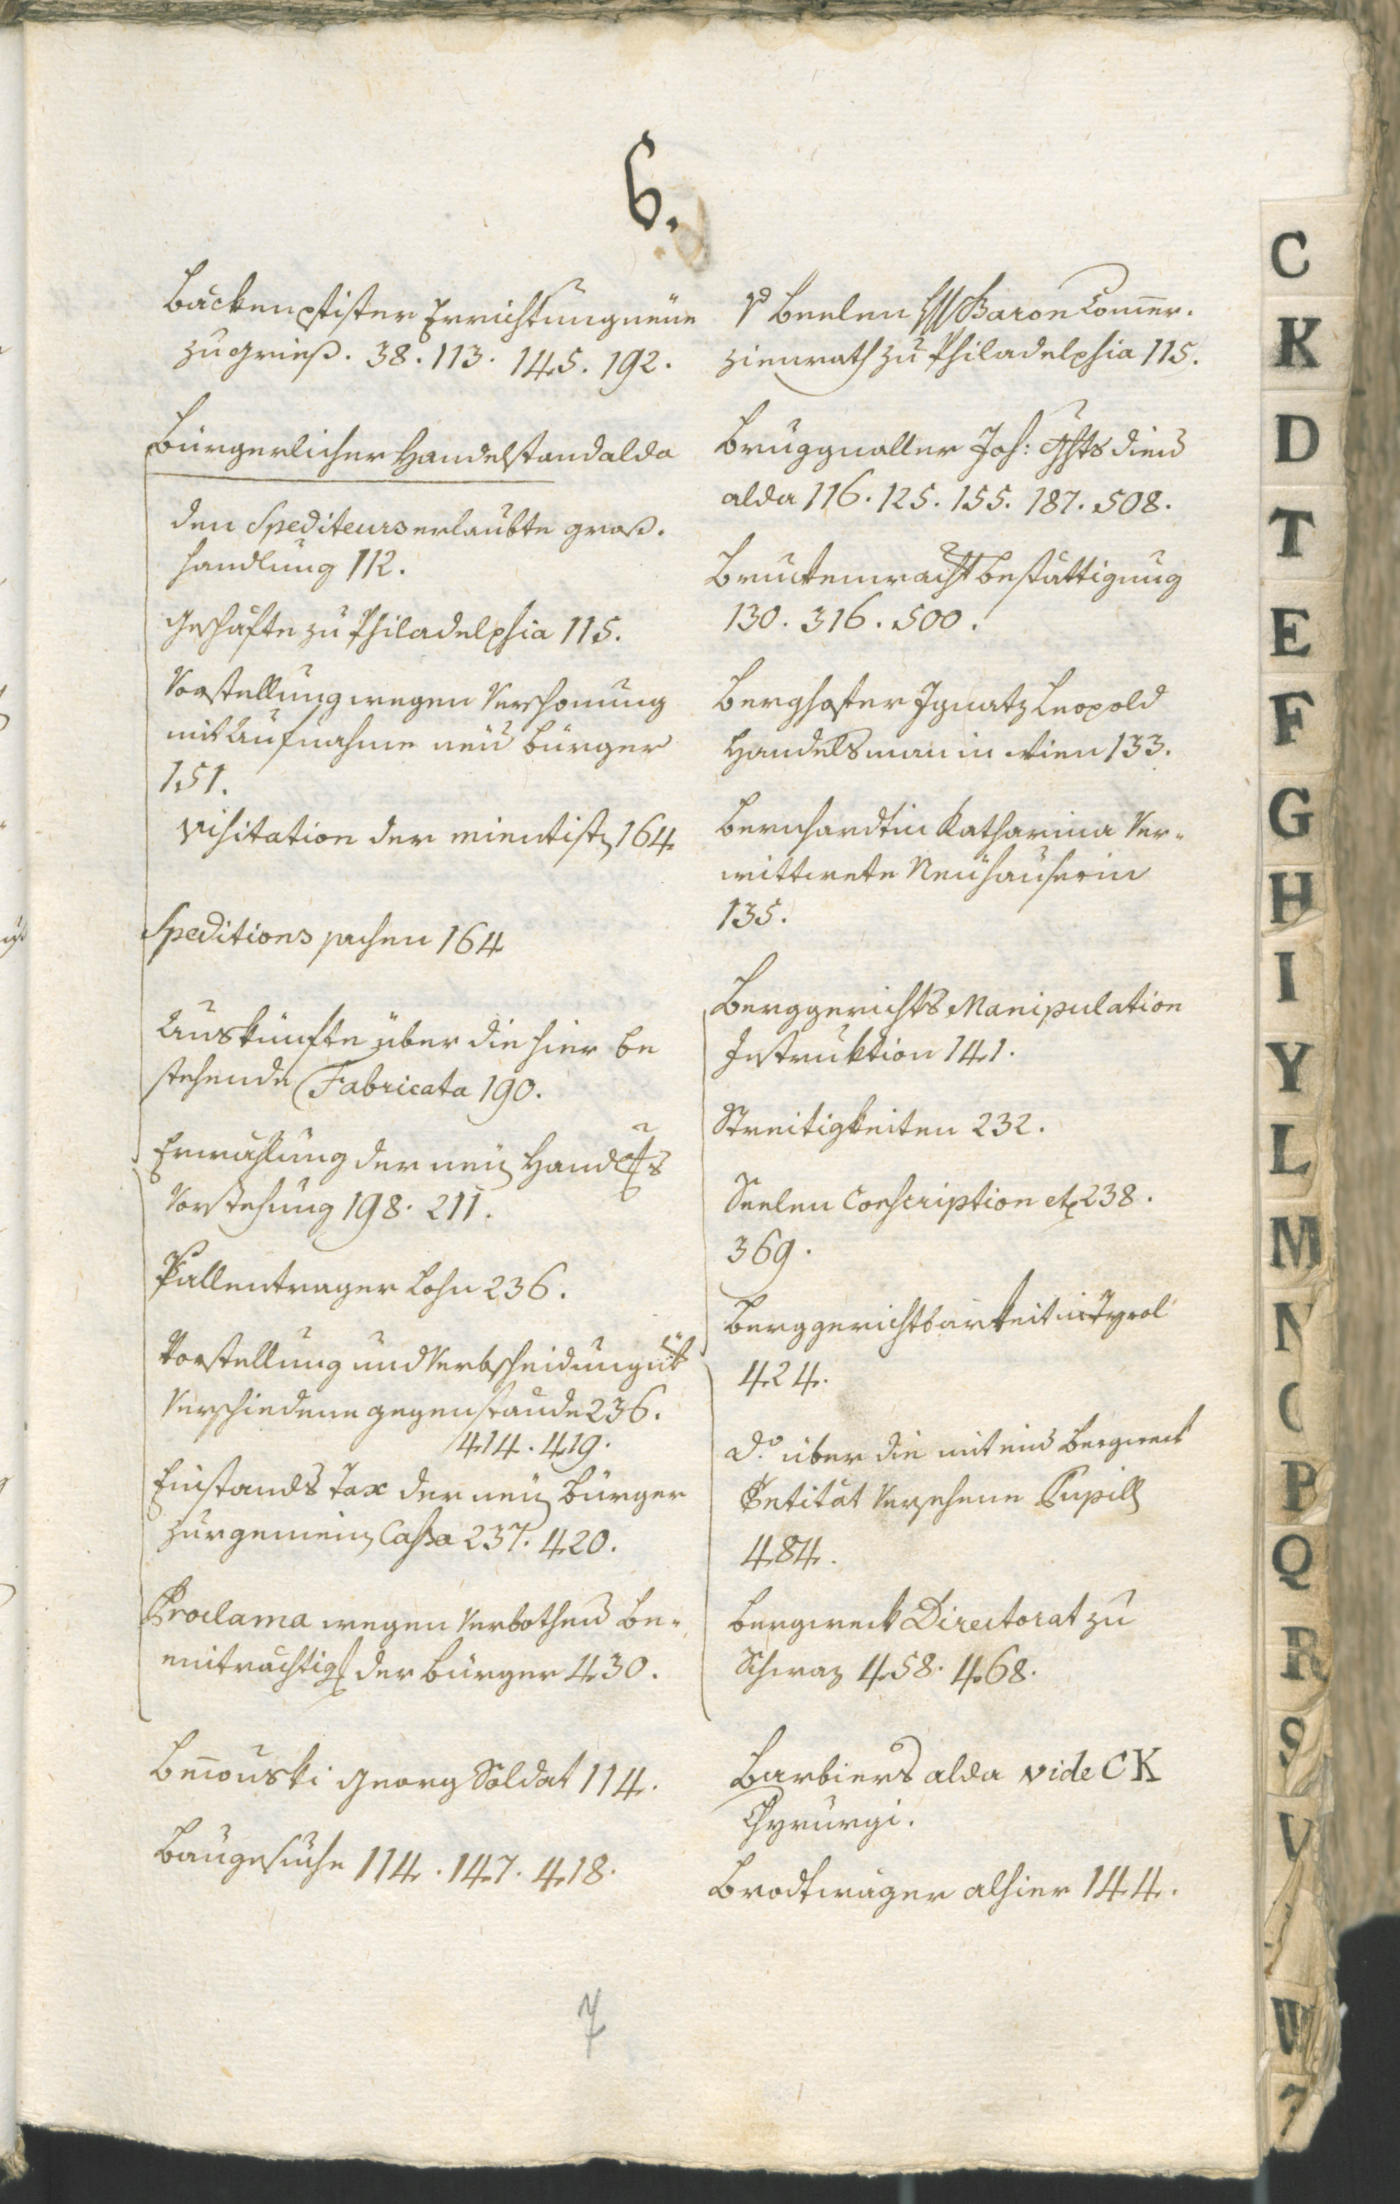 6.
Bäckenpfister Errichtung neüe
zu Grieß. 38. 113. 145. 192.
Bürgerlicher Handelstand alda
den Spediteurs erlaubte groß.
handlung 112.
Geschäfte zu Philadelphia 115.
Vorstellung wegen Verschonung
mit Aufnahme neüer Bürger
151.
Visitation der 164.
Speditions sachen 164
Auskünfte über die hier be
stehende Fabricata 190.
Erwählung der neüen Handels
Vorstehung 198. 211.
Pallentrager Lohn 236.
Vorstellung und Verbscheidung
Verschiedene gegenstände 236.
414. 419.
Einstands Tax der neüen Bürger
zur gemein Cassa 237. 420.
Proclama wegen Verbothener Be-
einträchtig der Bürger 430.
Benouski Georg Soldat 114.
Baugesuche 114. 147. 418.
v Beelen Baron Commer.
zienrath zu Philadelphia 115.
Bruggnaller Joh: diener
alda 116. 125. 155. 187. 508.
Bestättigung
130. 316. 500.
Berghofer Ignatz Leopold
Handelsman in Wien 133.
Bernhardtin Katharina Ver-
wittwete Neühauserin
135.
Berggerichts Manipulation
Instruktion 141.
Streitigkeiten 232.
Seelen Conscription etc 238.
369.
Berggerichtbarkeit in Tyrol
424.
do. über die mit einer Bergwerk
Entität Versehene Pupill
484.
Bergwerk Directorat zu
Schwaz 458. 468.
Barbiers alda vide CK
Chyrurgi.
Brodtwäger alhier 144.
7
C
K
D
T
E
F
G
H
I
Y
L
M
N
O
P
Q
R
S
V
W
Z